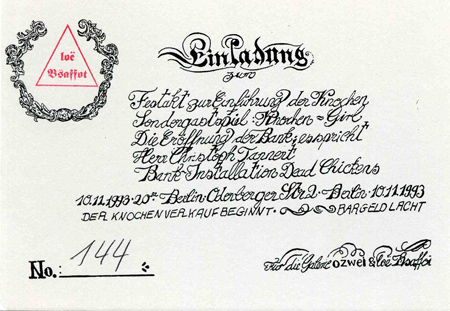 loë
Bsaffot
Einladung
zum
Festakt zur Einführung der Knochen
Sondergastspiel: Knochen = Girl
Die Eröffnung der Bank: es spricht
Herr Christoph Tannert
Bank-Installation Dead Chickens
10.11.1993 · 20°° · Berlin · Oderberger Str. 2 · Berlin · 10.11.1993
DER KNOCHENVERKAUF BEGINNT · BARGELD LACHT
No.: 144
Für die Galerie ozwei & loë Bsaffot